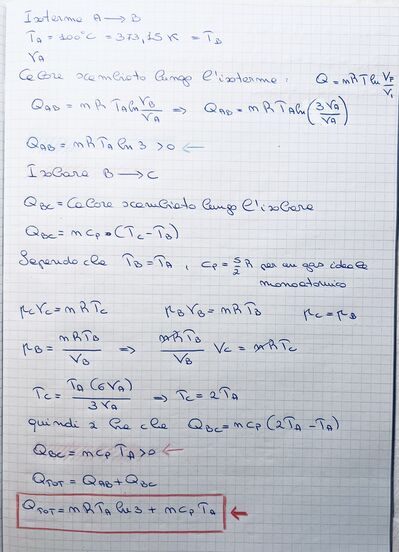 Isoterma A → B
T_A = 100°C = 373,15 K = T_B
V_A
Calore scambiato lungo l'isoterma: Q = nRT ln V_F/V_I
Q_AB = nR T_A ln V_B/V_A => Q_AB = nR T_A ln (3V_A/V_A)
Q_AB = nR T_A ln 3 > 0 ←
Isobara B → C
Q_BC = Calore scambiato lungo l'isobara
Q_BC = n c_p · (T_C - T_B)
Sapendo che T_B = T_A , c_p = 5/2 R per un gas ideale
monoatomico
p_C V_C = nR T_C p_B V_B = nR T_B p_C = p_B
p_B = nR T_B/V_B => nR T_B/V_B V_C = nR T_C
T_C = T_A (6V_A)/3V_A => T_C = 2T_A
quindi si ha che Q_BC = n c_p (2T_A - T_A)
Q_BC = n c_p T_A > 0 ←
Q_TOT = Q_AB + Q_BC
Q_TOT = nR T_A ln 3 + n c_p T_A ←